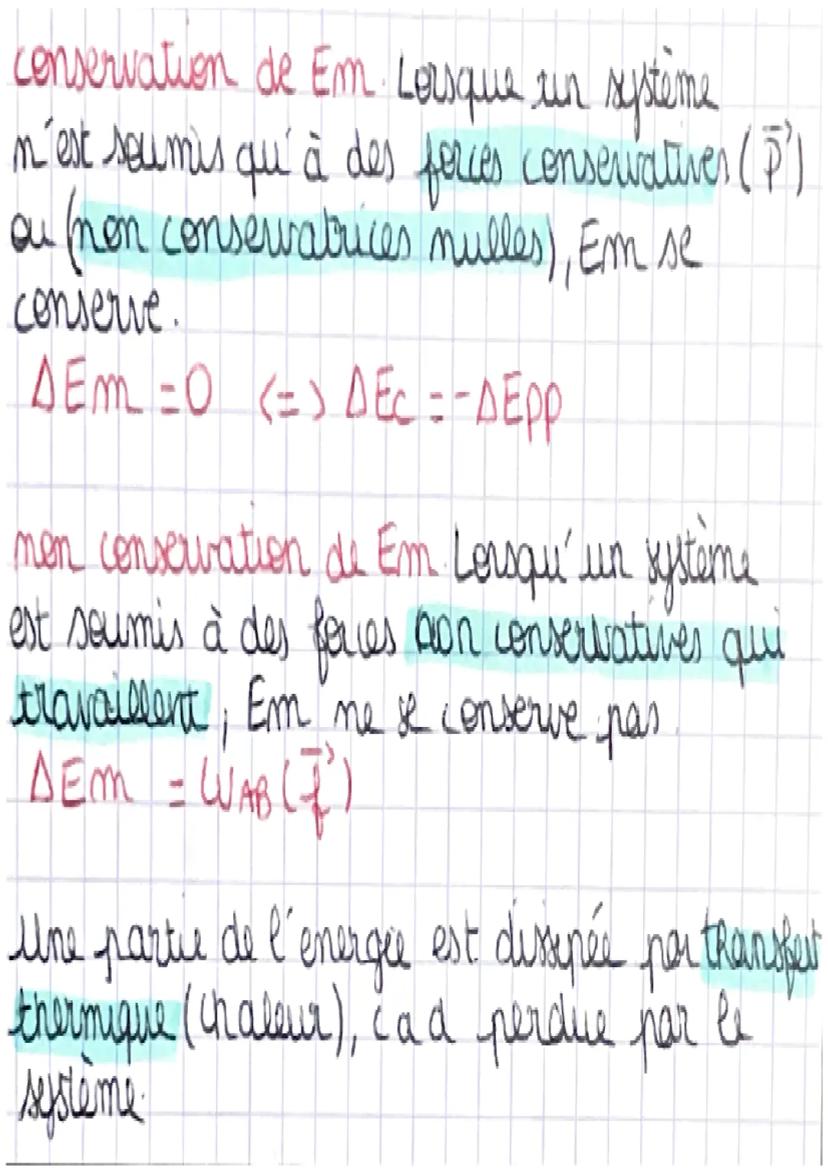 conservation de Em. Lorsque un système
n'est soumis qu'à des forces conservatives (P⃗)
ou (non conservatrices nulles), Em se
conserve.
ΔEm = 0 <=> ΔEc = -ΔEpp
non conservation de Em. Lorsqu'un système
est soumis à des forces non conservatives qui
travaillent, Em ne se conserve pas.
ΔEm = WAB(f⃗)
Une partie de l'énergie est dissipée par transfert
thermique (chaleur), càd perdue par le
système.